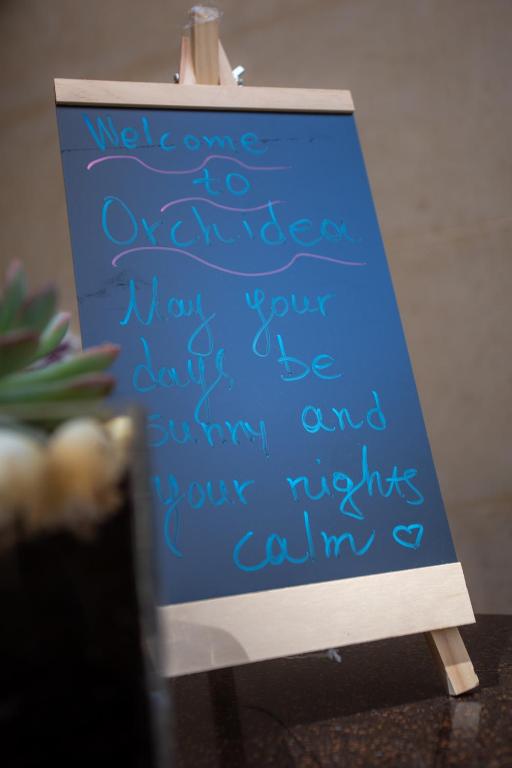 Welcome
to
Orchidea
May your
days be
sunny and
your nights
calm ♡